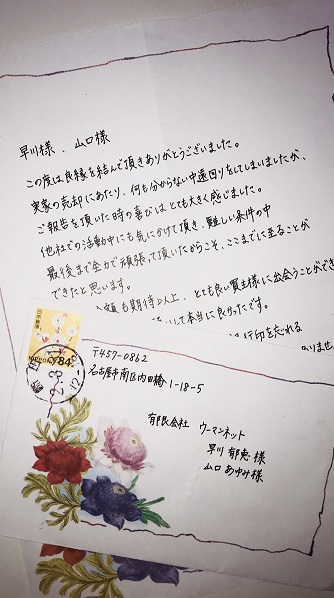 早川様、山口様
この度は良縁を結んで頂きありがとうございました。
実家の売却にあたり、何も分からない中遠回りをしてしまいましたが、
ご報告を頂いた時の喜びはとても大きく感じました。
他社での活動中にも気にかけて頂き、難しい条件の中
最後まで全力で頑張って頂いたからこそ、ここまでに至ることが
できたと思います。
額も期待以上、とても良い買主様に出会うことができ
して本当に良かったです。
行印を忘れる
〒457-0862
名古屋市南区内田橋1-18-5
有限会社 ウーマンネット
早川 郁恵 様
山口 あゆみ 様
NIPPON 84